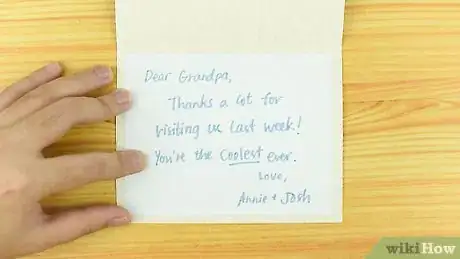 Dear Grandpa,
Thanks a lot for
visiting us last week!
You're the Coolest ever.
Love,
Annie + Josh
wikiHow